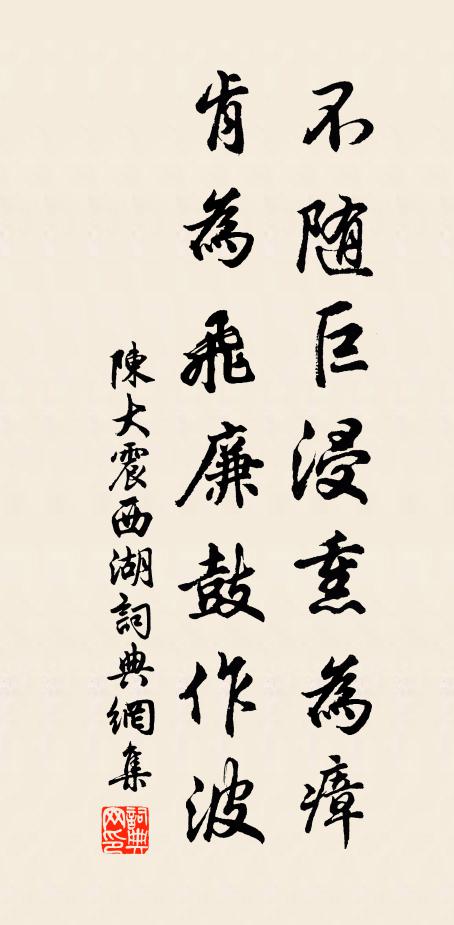 不随巨浸熏為瘴
肯為飛廉鼓作波
陳大震西湖詞典網集
詞典網印